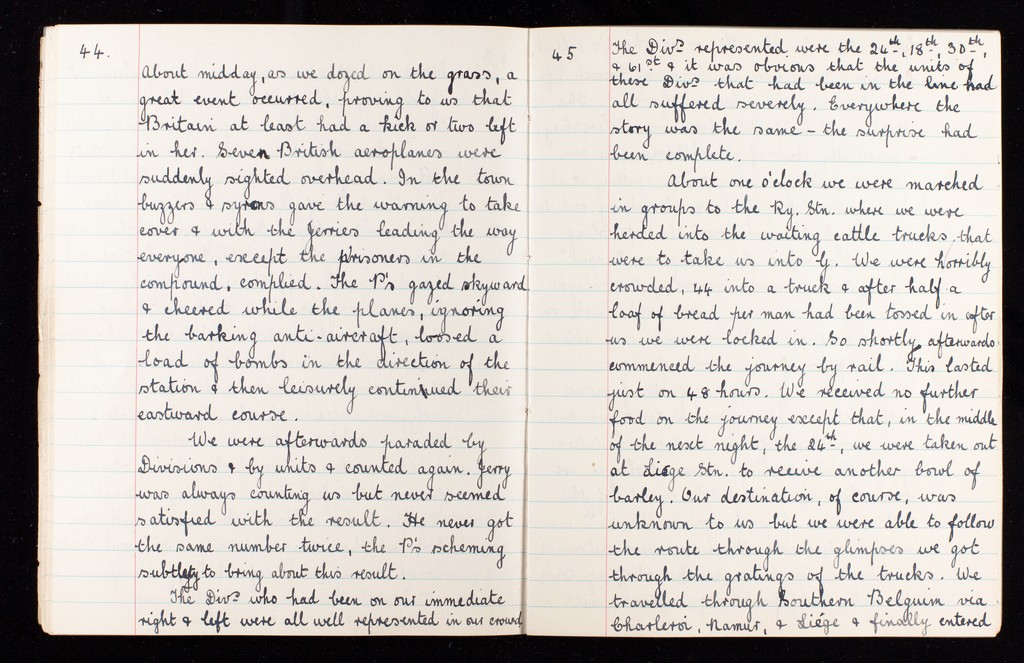 44.
About midday, as we dozed on the grass, a
great event occurred, proving to us that
Britain at least had a kick or two left
in her. Seven British aeroplanes were
suddenly sighted overhead. In the town
buzzers & syrens gave the warning to take
cover & with the Jerries leading the way
everyone, except the prisoners in the
compound, complied. The P's gazed skyward
& cheered while the planes, ignoring
the barking anti-aircraft, loosed a
load of bombs in the direction of the
station & then leisurely continued their
eastward course.
We were afterwards paraded by
Divisions & by units & counted again. Jerry
was always counting us but never seemed
satisfied with the result. He never got
the same number twice, the P's scheming
subtley to bring about this result.
The Divns who had been on our immediate
right & left were all well represented in our crowd
45
The Divns represented were the 24th, 18th, 30th,
& 61st & it was obvious that the units of
these Divns that had been in the line had
all suffered severely. Everywhere the
story was the same – the surprise had
been complete.
About one o'clock we were marched
in groups to the Ry. Stn. where we were
herded into the waiting cattle trucks that
were to take us into G. We were horribly
crowded, 44 into a truck & after half a
loaf of bread per man had been tossed in after
us we were locked in. So shortly afterwards
commenced the journey by rail. This lasted
just on 48 hours. We received no further
food on the journey except that, in the middle
of the next night, the 24th, we were taken out
at Liége Stn. to receive another bowl of
barley. Our destination, of course, was
unknown to us but we were able to follow
the route through the glimpses we got
through the gratings of the trucks. We
travelled through Southern Belguim via
Charleroi, Namur, & Liége & finally entered